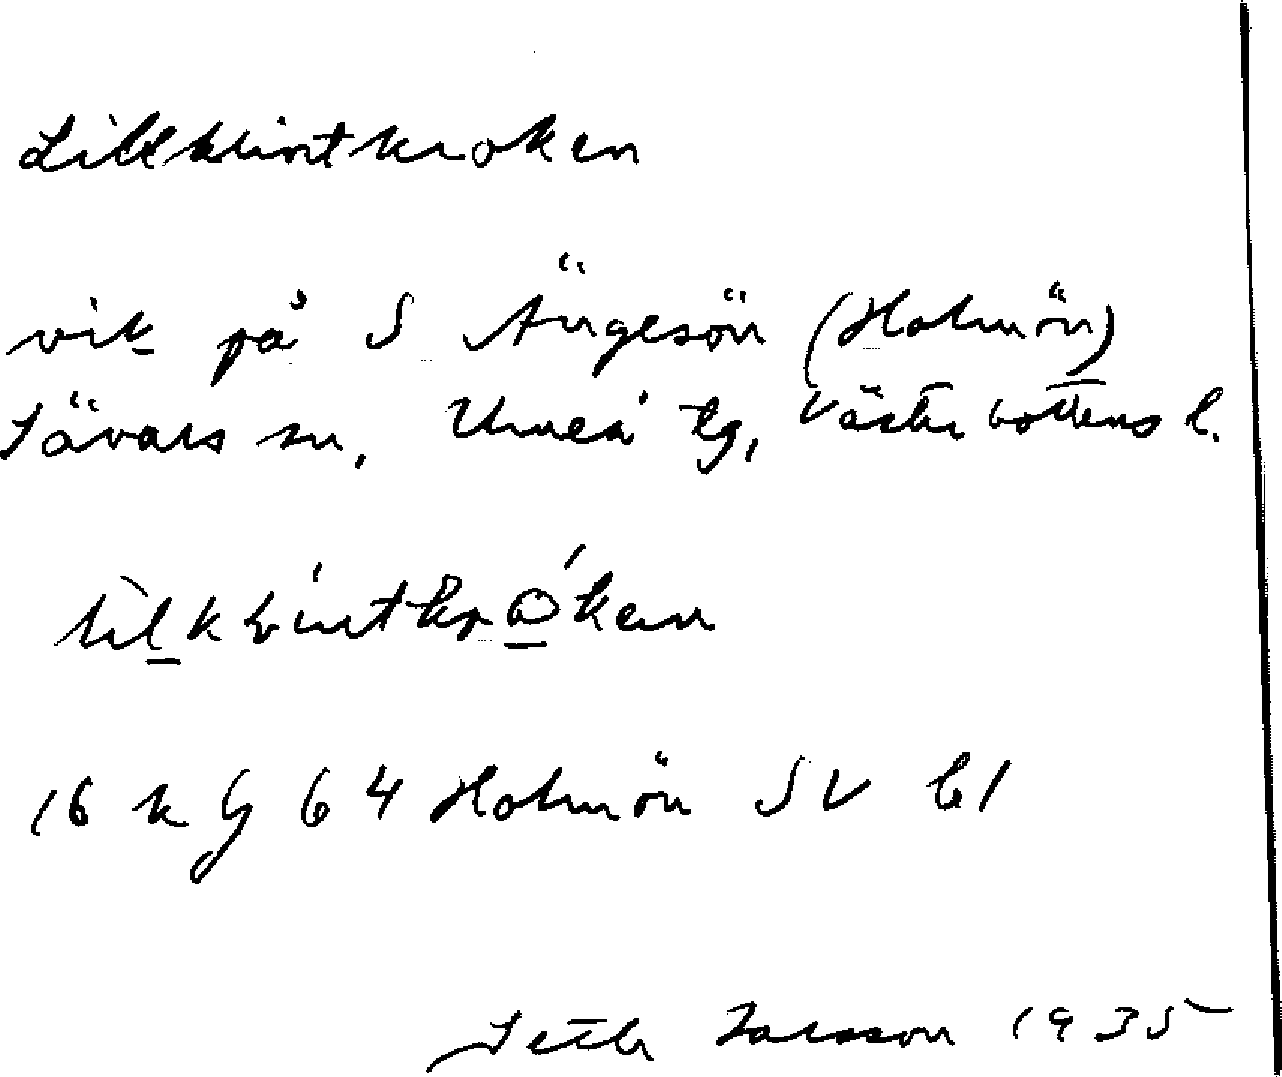 Lillklintkroken
vik på S Ängesön (Holmön)
Sävars sn, Umeå tg, Västerbottens l.
16 k G 64 Holmön SV b1
Seth Larsson 1935